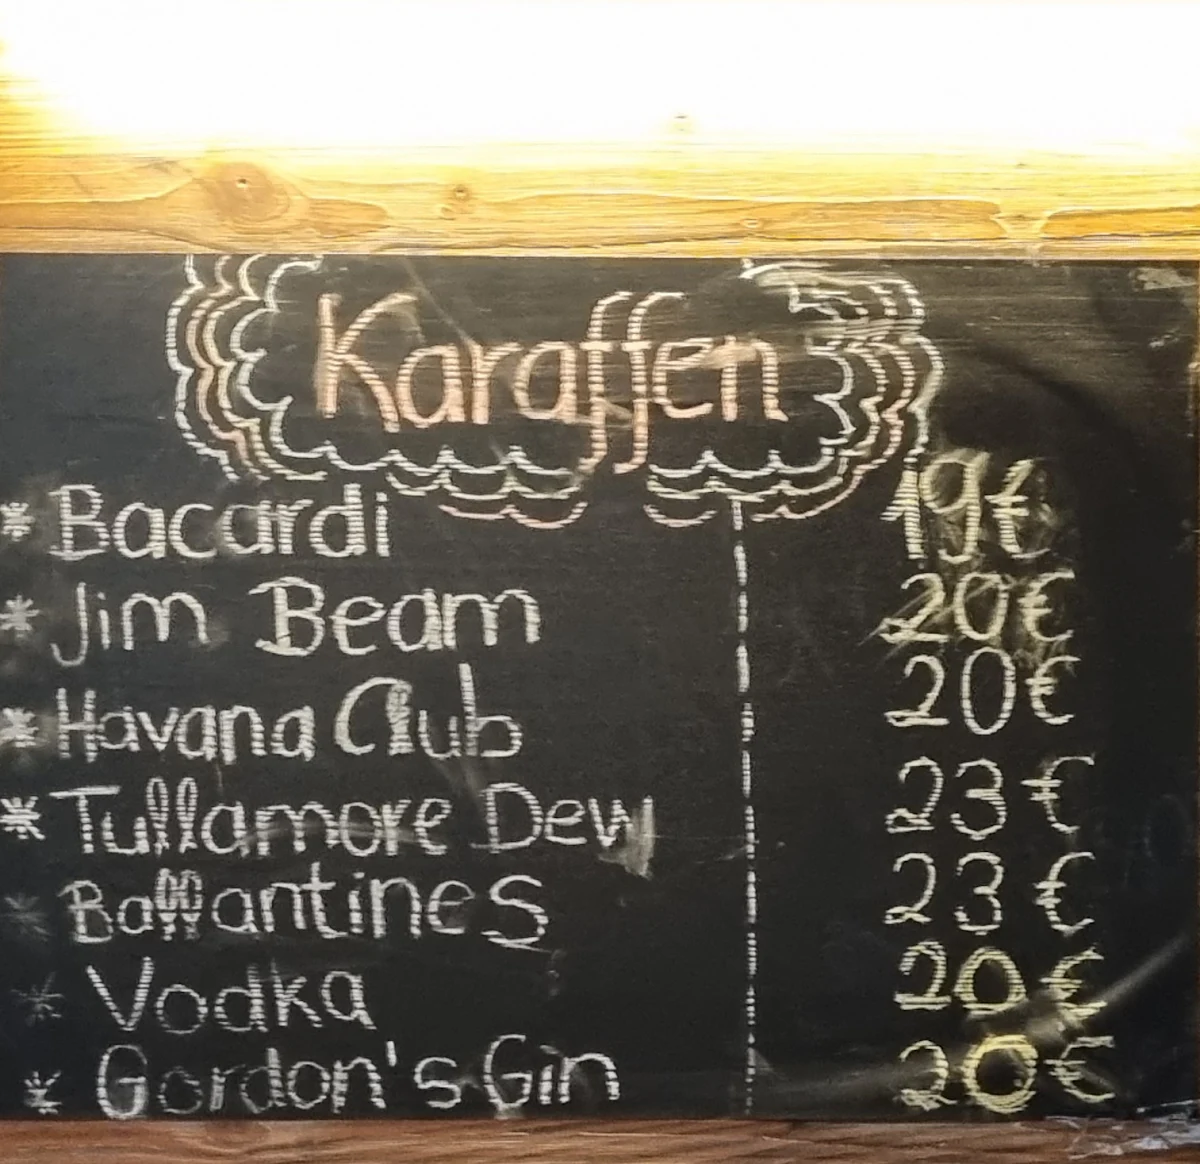 Karaffen
* Bacardi 19€
* Jim Beam 20€
* Havana Club 20€
* Tullamore Dew 23€
* Ballantines 23€
* Vodka 20€
* Gordon's Gin 20€